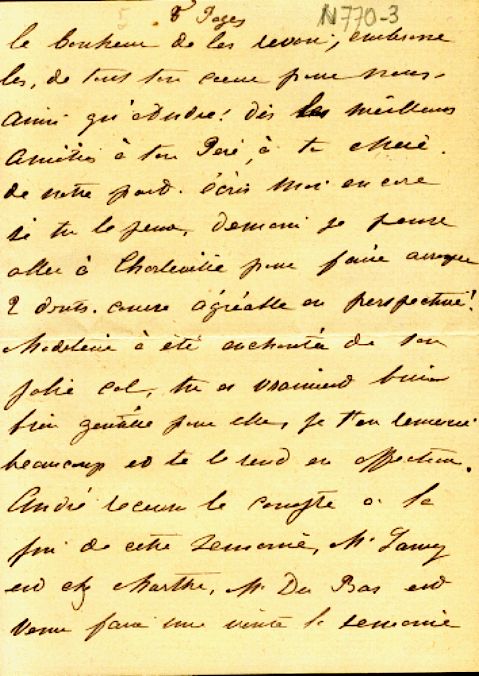 8 Pages
N770-3
le bonheur de les revoir, embrasse
les, de tout ton cœur pour nous
ainsi qu'André! dis les meilleurs
amitiés à ton Père, à ta chérie
de notre part. écris moi encore
si tu le peux, demain je pense
aller à Charleville pour faire arranger
2 dents. course agréable en perspective!
Madeleine à été enchantée de son
jolie col, tu es vraiment bien
bien gentille pour elle, je t'en remercie
beaucoup et te le rend en affection.
André recevra le compte a la
fin de cette semaine, Mr
est chez Marthe, Mr Du Bas est
venu faire une visite la semaine